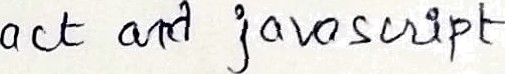 act and javascript